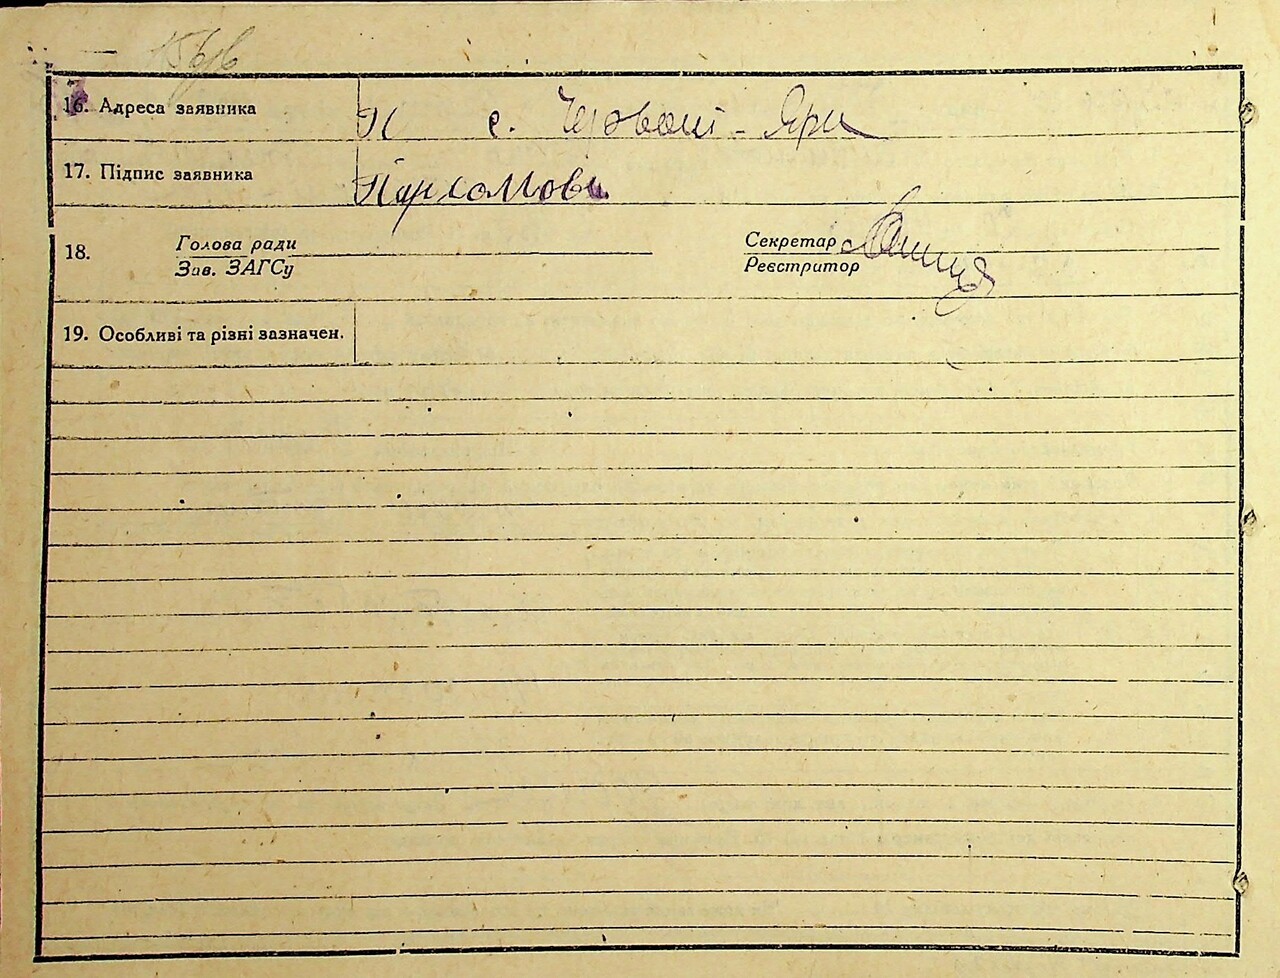 16. Адреса заявника с. Червоні-Яри
17. Підпис заявника Пархомови
18. Голова ради
Зав. ЗАГСу
Секретар
Реєстритор
19. Особливі та різні зазначен.